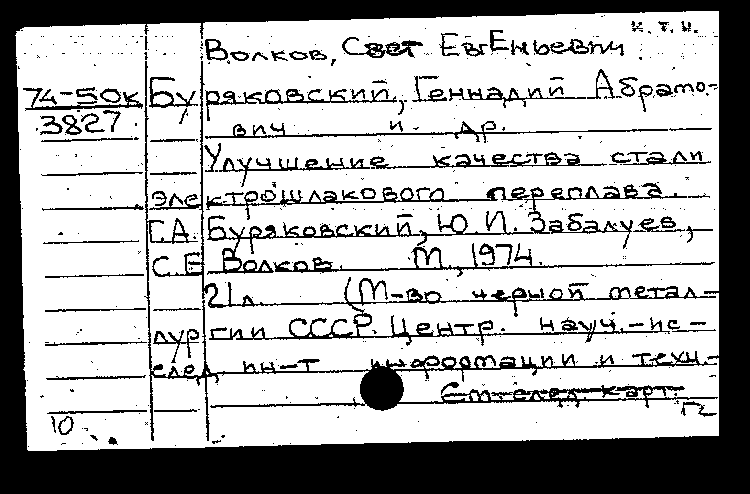 к. т. н.
Волков, Свет Евгеньевич
74-50к Буряковский, Геннадий Абрамо-
3827 вич и др.
Улучшение качества стали
электрошлакового переплава.
Г.А. Буряковский, Ю.И. Забалуев,
С.Е Волков. М., 1974.
21 л. (М-во черной метал-
лургии СССР. Центр. науч.-ис-
след ин-т информации и техн.-
См. след. карт.
10